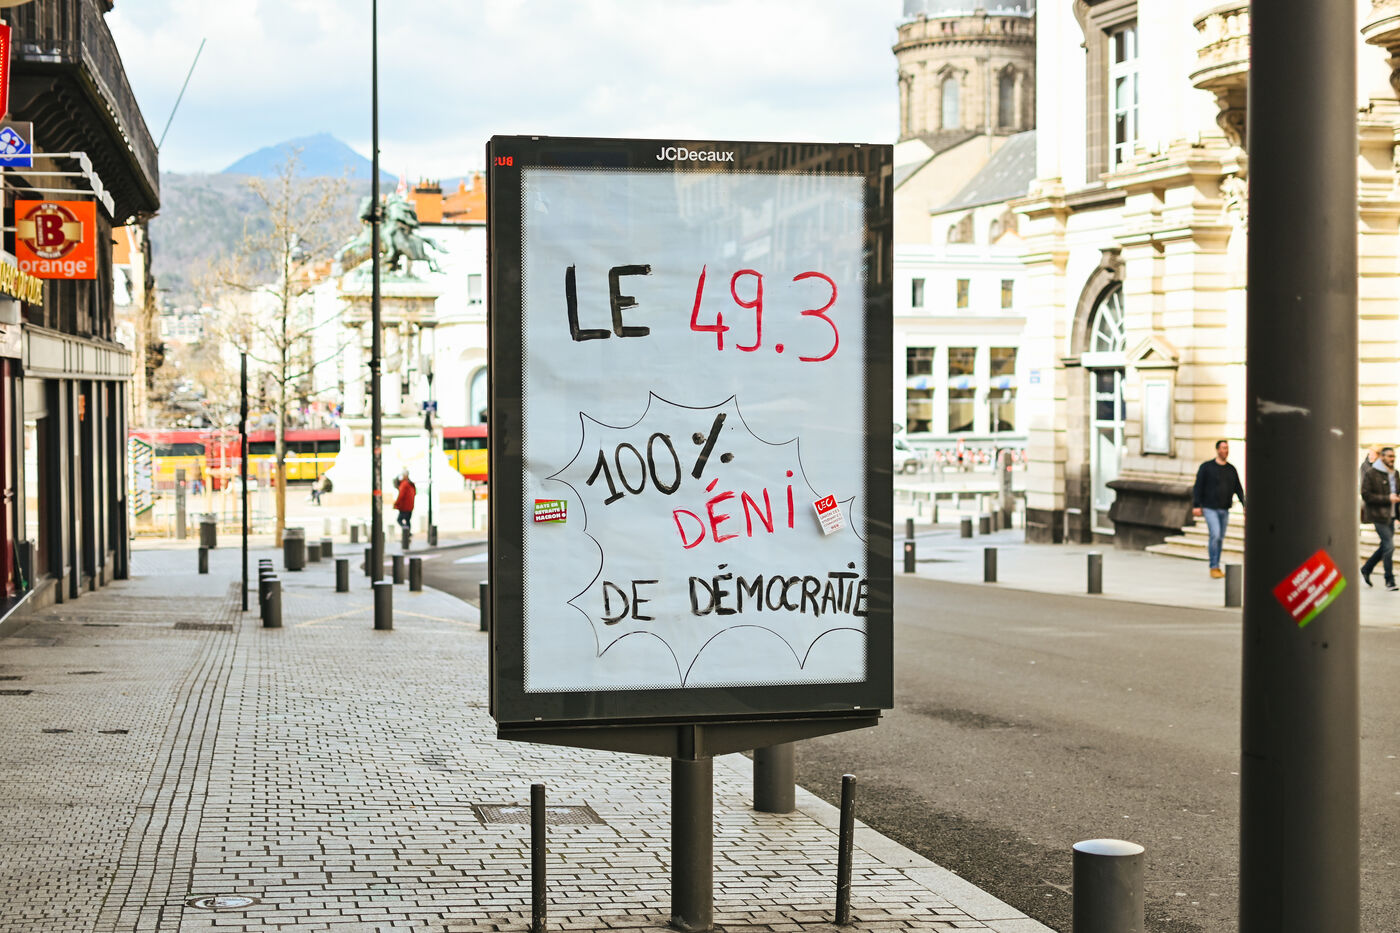 JCDecaux
BUS
LE 49.3
100%
DÉNI
DE DÉMOCRATIE
BATS EN
RETRAITE
MACRON !
LEC
B
orange
NON
à la